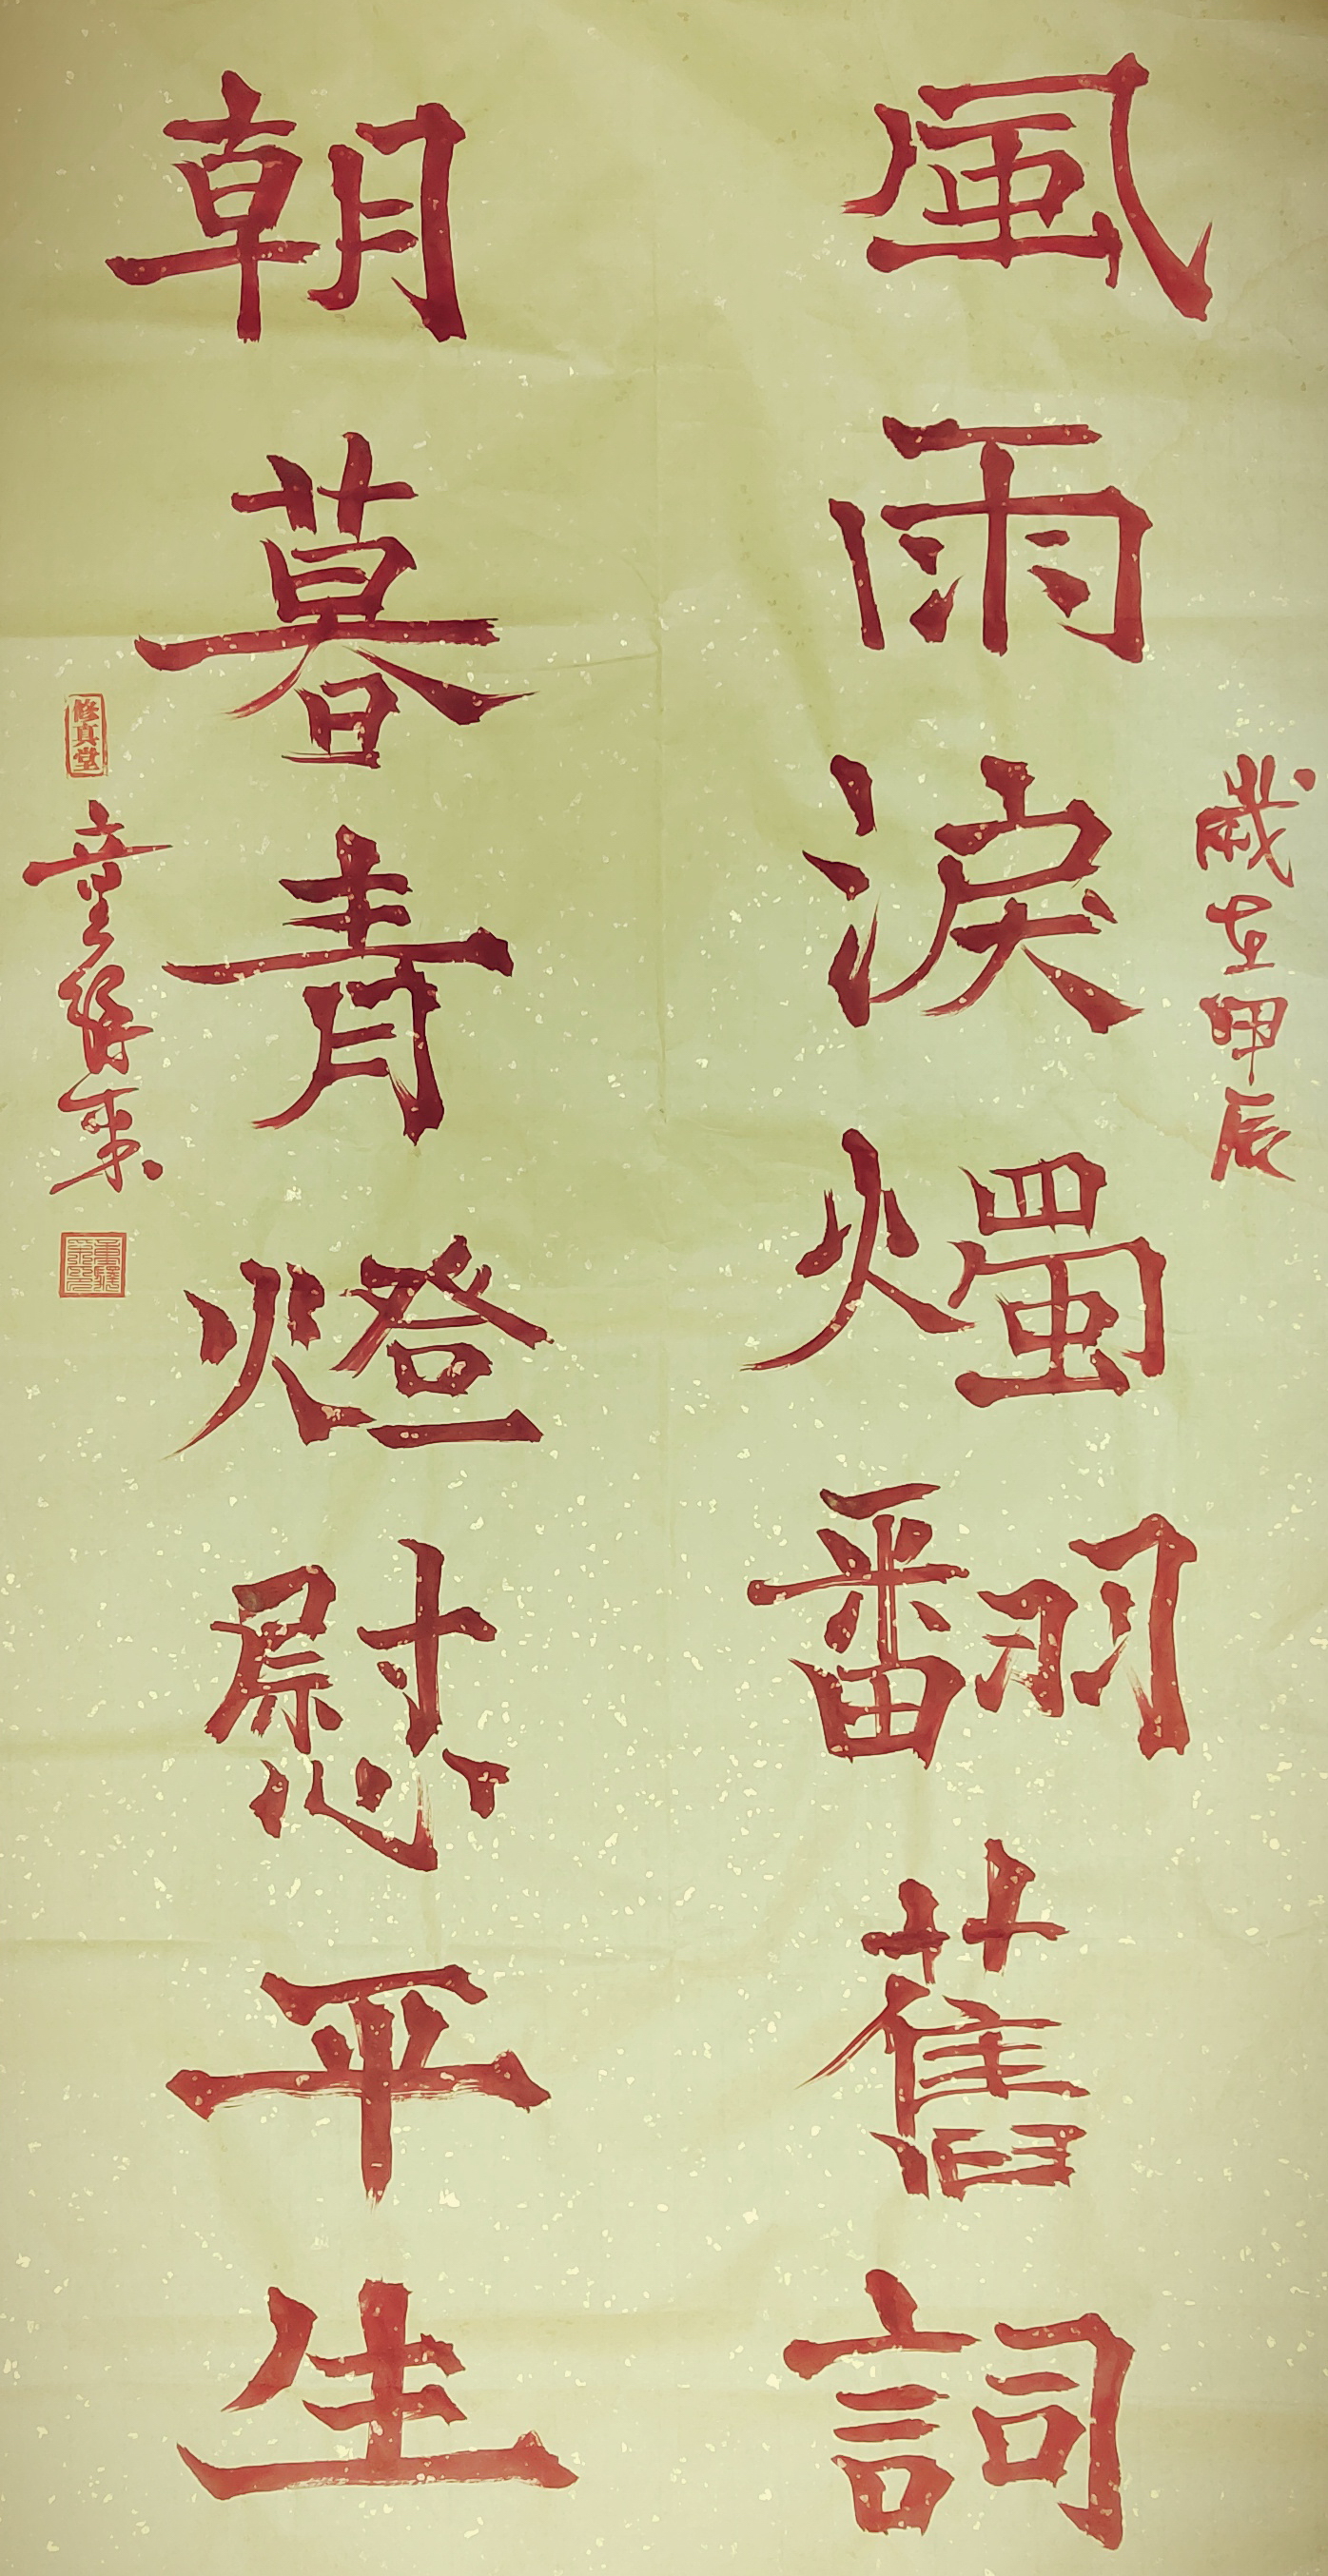 歲在甲辰
風雨淚燭翻舊詞
朝暮青燈慰平生
修真堂